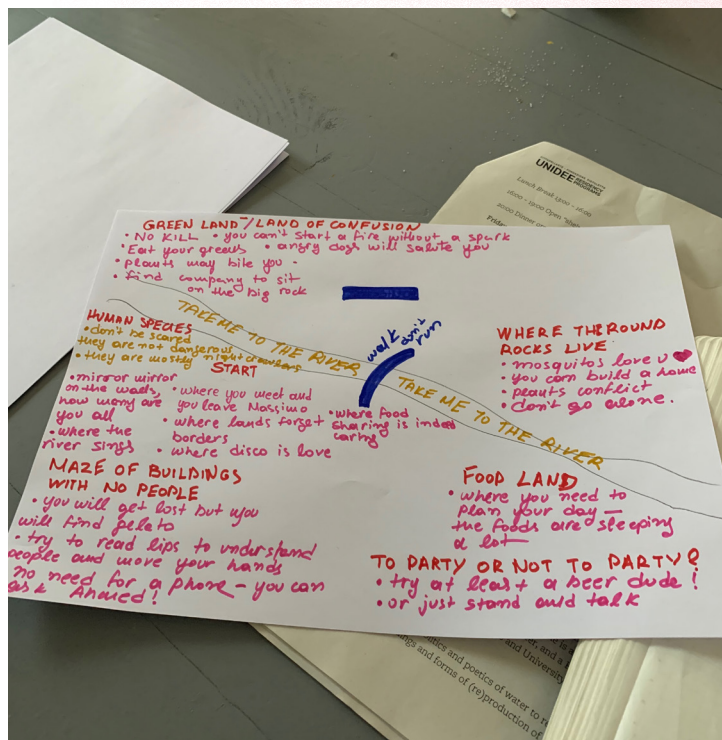 UNIDEE RESIDENCY PROGRAMS
Lunch Break 13:00 - 16:00
16:00 - 19:00 Open
20:00 Dinner
GREEN LAND / LAND OF CONFUSION
• NO KILL • you can't start a fire without a spark
• Eat your greens • angry dogs will salute you
• plants may bite you -
• find company to sit
on the big rock
TAKE ME TO THE RIVER
walk don't run
TAKE ME TO THE RIVER
HUMAN SPECIES
• don't be scared
they are not dangerous
• they are mostly night crawlers
START
• mirror mirror
on the walls,
how many are
you all
• where the
river sings
• where you meet and
you leave Massimo
• where lands forget
borders
• where disco is love
• where food
sharing is indeed
caring
WHERE THE ROUND
ROCKS LIVE
• mosquitos love u
• you can build a home
• plants conflict
• don't go alone.
MAZE OF BUILDINGS
WITH NO PEOPLE
• you will get lost but you
will find gelato
• try to read lips to understand
people and move your hands
no need for a phone - you can
ask Ahmed!
FOOD LAND
• where you need to
plan your day -
the foods are sleeping
a lot
TO PARTY OR NOT TO PARTY?
• try at least a beer dude!
• or just stand and talk
and University
and poetics of water to
and forms of (re)production of